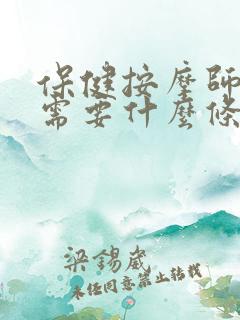 保健按摩師
需要什麼條
梁錫崴
未經同意禁止轉載